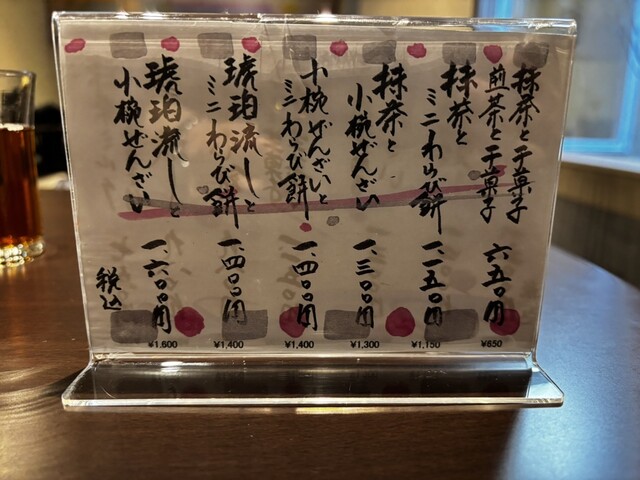 抹茶と干菓子
煎茶と干菓子
六五〇円
¥650
抹茶と
ミニわらび餅
一、一五〇円
¥1,150
抹茶と
小椀ぜんざい
一、三〇〇円
¥1,300
小椀ぜんざいと
ミニわらび餅
一、四〇〇円
¥1,400
琥珀流しと
ミニわらび餅
一、四〇〇円
¥1,400
琥珀流しと
小椀ぜんざい
一、六〇〇円
¥1,600
税込